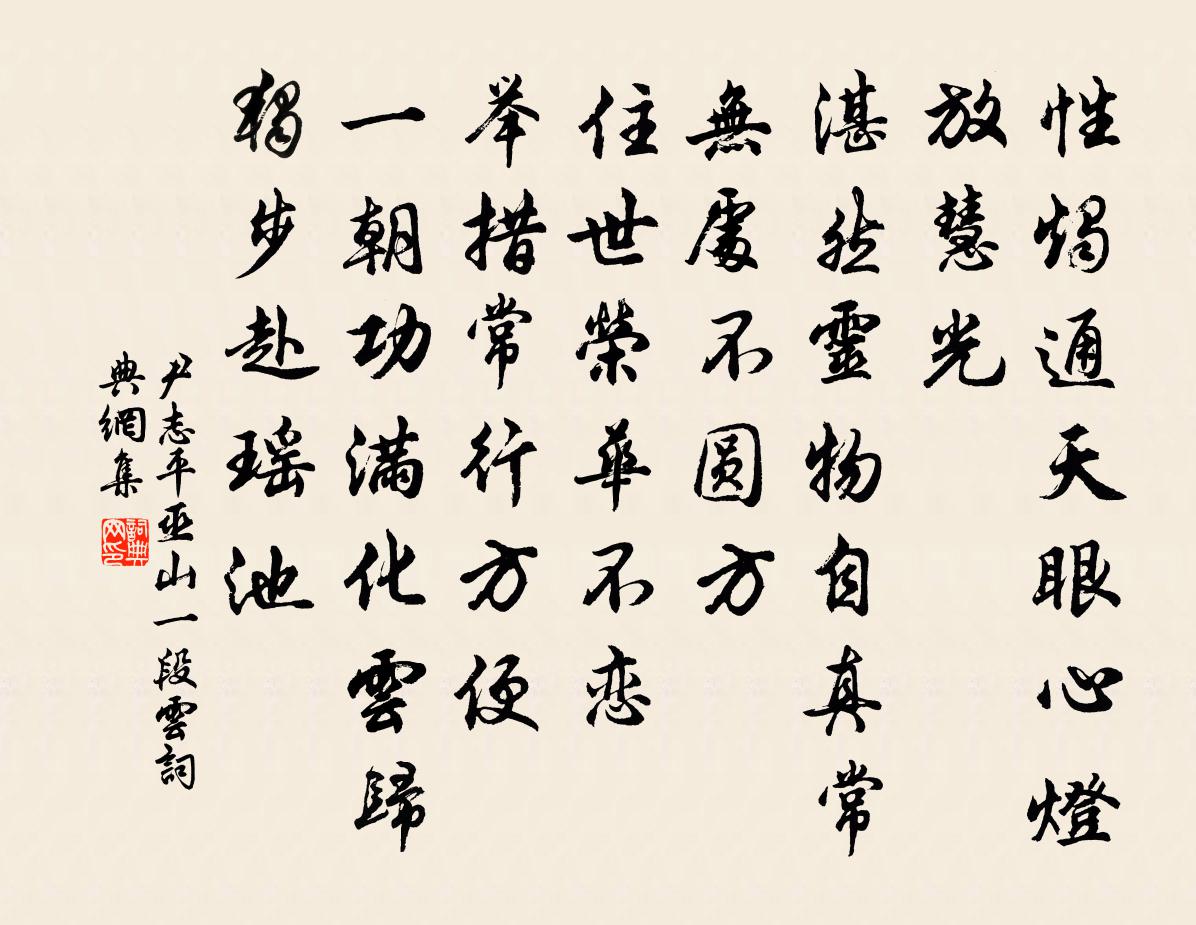 性燭通天眼心燈
放慧光
湛然靈物自真常
無處不圆方
住世榮華不恋
举措常行方便
一朝功满化雲歸
獨步赴瑶池
尹志平巫山一段雲詞
典網集
詞典网印